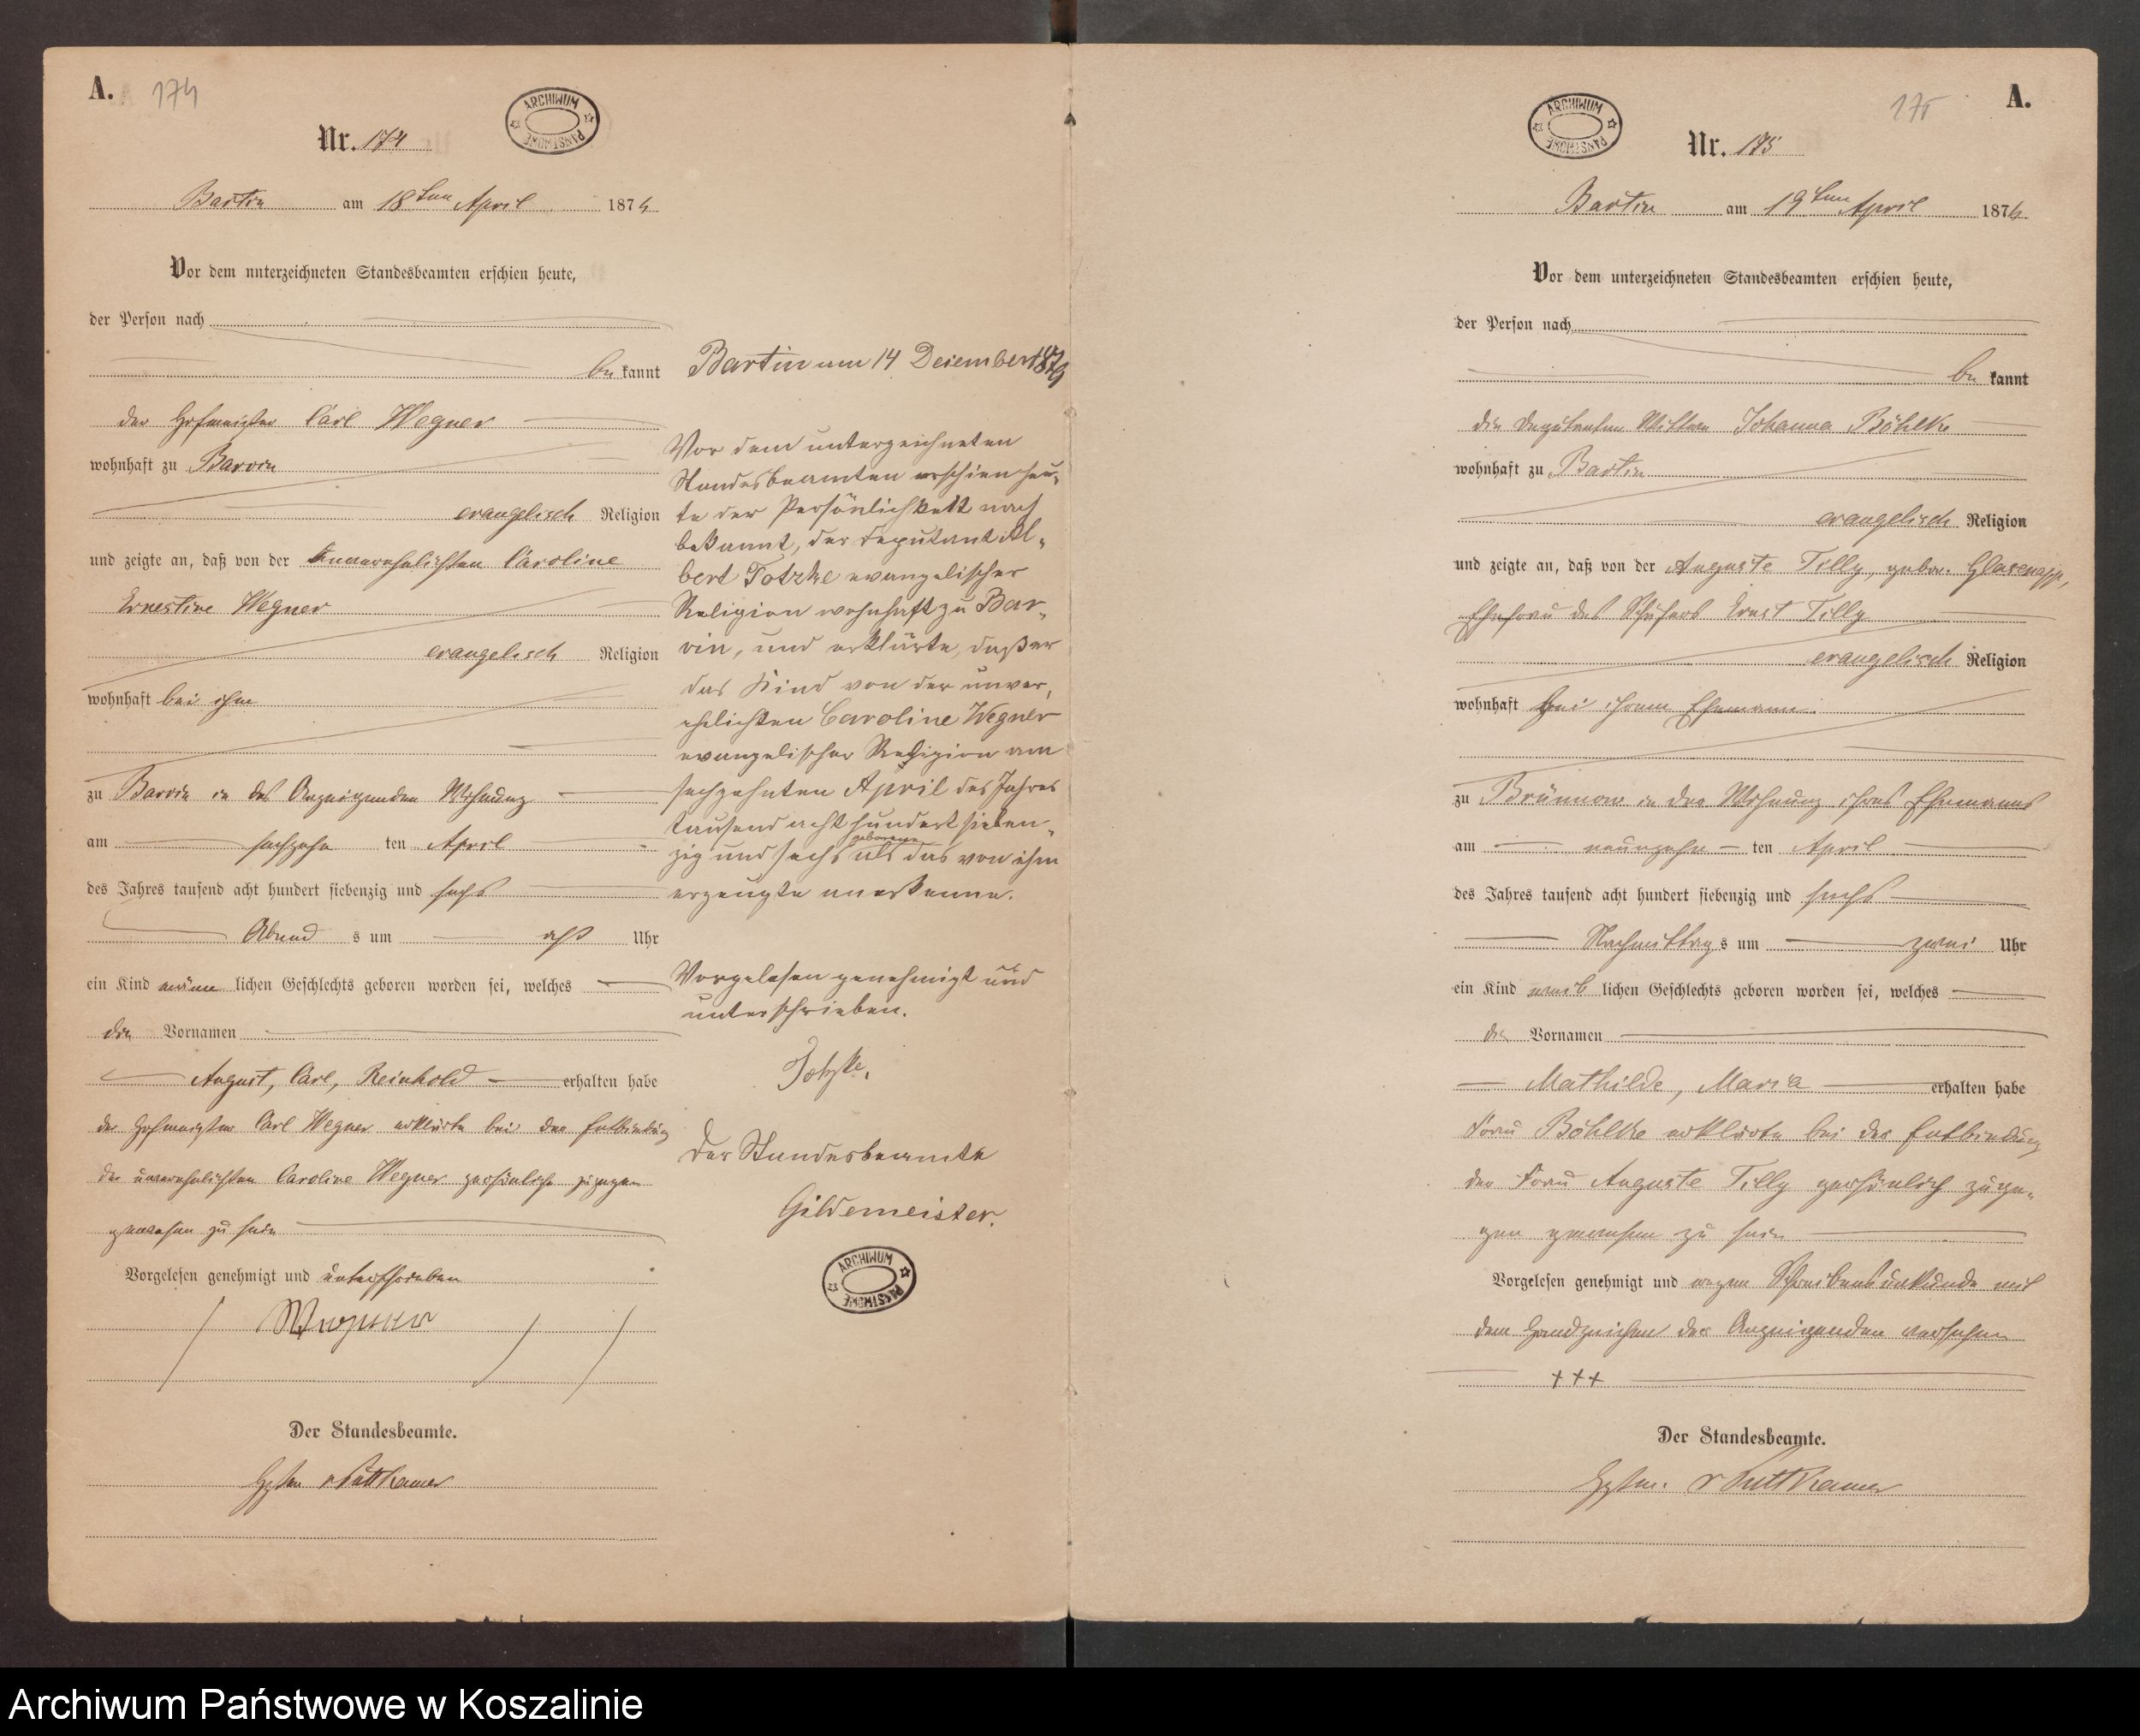 A. 174
ARCHIWUM PAŃSTWOWE
Nr. 174
Bartin am 18ten April 1876
Vor dem unterzeichneten Standesbeamten erschien heute,
der Person nach
be kannt
der Hofmeister Carl Wegner
wohnhaft zu Barvin
evangelisch Religion
und zeigte an, daß von der unverehelichten Caroline
Ernestine Wegner
evangelisch Religion
wohnhaft bei ihm
zu Barvin in des Anzeigenden Wohnung
am sechzehn ten April
des Jahres tausend acht hundert siebenzig und sechs
Abend s um acht Uhr
ein Kind männ lichen Geschlechts geboren worden sei, welches
die Vornamen
August, Carl, Reinhold erhalten habe
der Hofmeister Carl Wegner erklärte bei der Entbindung
der unverehelichten Caroline Wegner persönlich zugegen
gewesen zu sein
Vorgelesen genehmigt und unterschrieben
Wegner
Der Standesbeamte.
v Puttkamer
Bartin am 14 Dezember 1879
Vor dem unterzeichneten
Standesbeamten erschien heu-
te der Persönlichkeit nach
bekannt, der Deputant Al-
bert Totzke evangelischer
Religion wohnhaft zu Bar-
vin, und erklärte, daß er
das Kind von der unver-
ehelichten Caroline Wegner
evangelischer Religion am
sechzehnten April des Jahres
tausend acht hundert sieben-
zig und sechs geborene als das von ihm
erzeugte anerkenne.
Vorgelesen genehmigt und
unterschrieben.
Totzke.
Der Standesbeamte
Gildemeister.
ARCHIWUM PAŃSTWOWE
175 A.
ARCHIWUM PAŃSTWOWE
Nr. 175
Bartin am 19ten April 1876
Vor dem unterzeichneten Standesbeamten erschien heute,
der Person nach
be kannt
die Deputanten Wittwe Johanna Böhlke
wohnhaft zu Bartin
evangelisch Religion
und zeigte an, daß von der Auguste Tilly, gebor. Glasenapp,
Ehefrau des Schäfers Ernst Tilly
evangelisch Religion
wohnhaft bei ihrem Ehemann
zu Brünnow in der Wohnung ihres Ehemanns
am neunzehn ten April
des Jahres tausend acht hundert siebenzig und sechs
Nachmittag s um zwei Uhr
ein Kind weib lichen Geschlechts geboren worden sei, welches
die Vornamen
Mathilde, Maria erhalten habe
Frau Böhlke erklärte bei der Entbindung
der Frau Auguste Tilly persönlich zuge-
gen gewesen zu sein
Vorgelesen genehmigt und wegen Schreibensunkunde mit
dem Handzeichen der Anzeigenden versehen
+++
Der Standesbeamte.
v Puttkamer
Archiwum Państwowe w Koszalinie